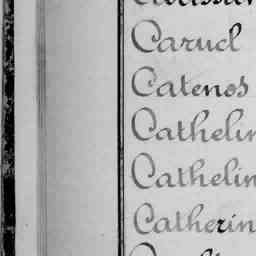 Carucl
Catenos
Cathelin
Cathelin
Catherin